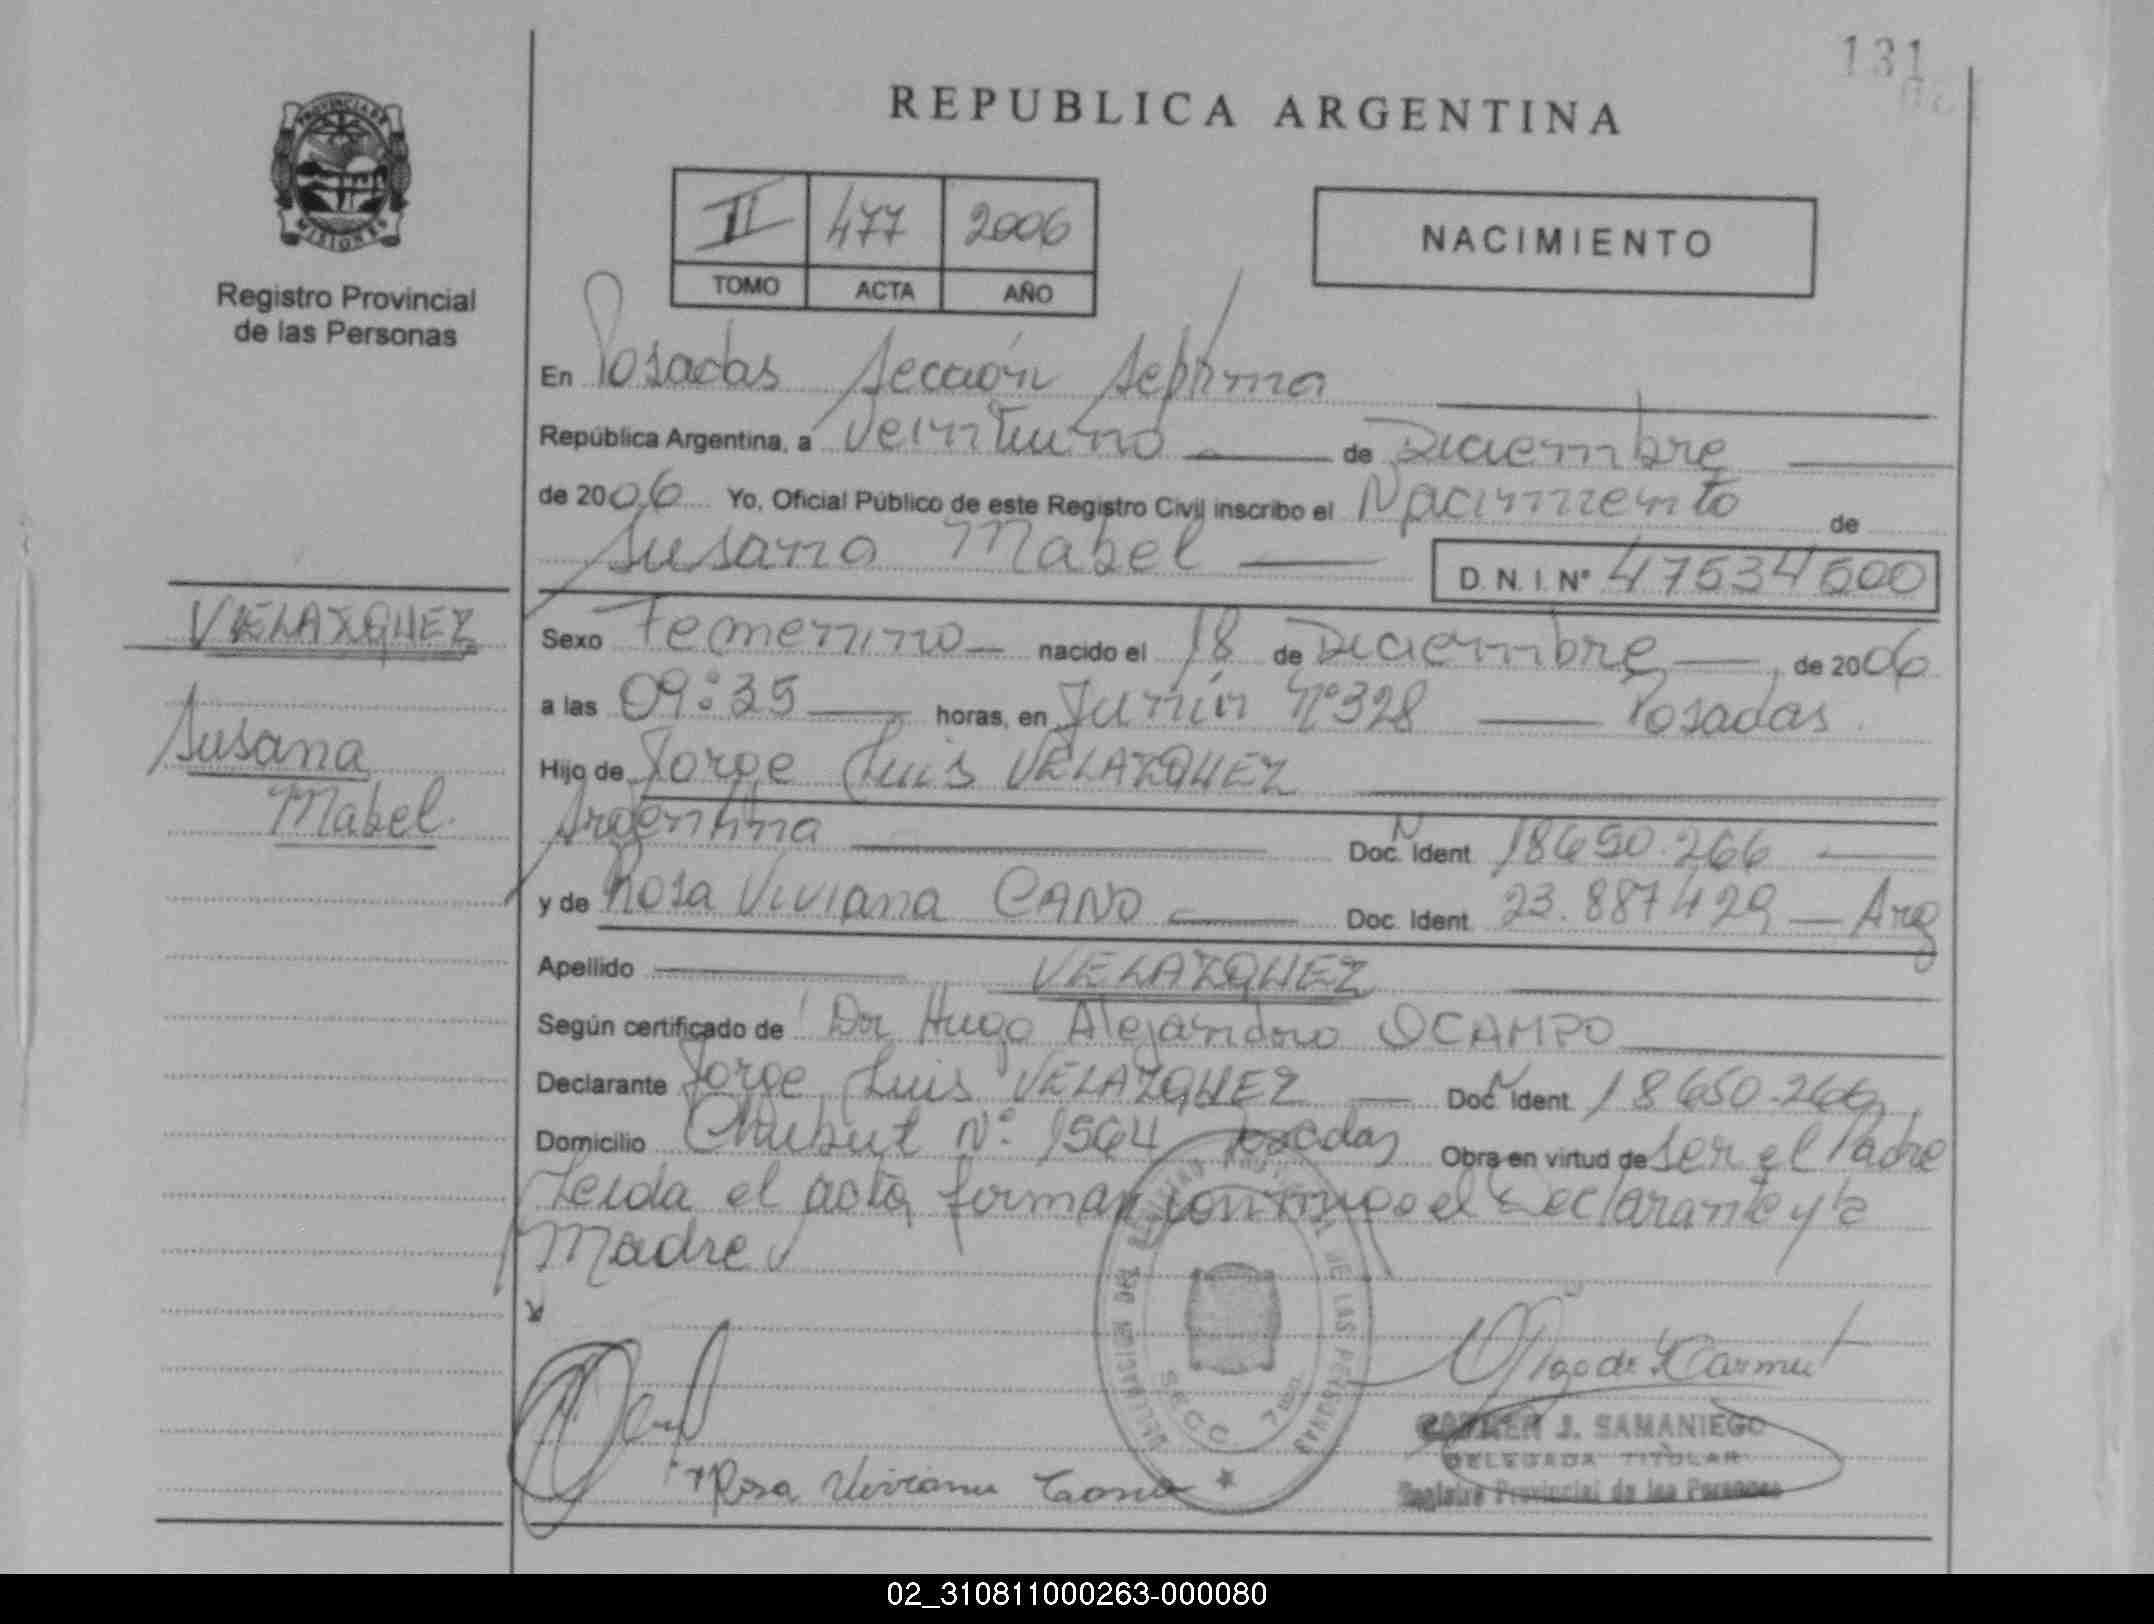 131
REPUBLICA ARGENTINA
PROVINCIA DE
MISIONES
Registro Provincial
de las Personas
II 477 2006
TOMO ACTA AÑO
NACIMIENTO
En Posadas Sección Séptima
República Argentina, a Veintiuno de Diciembre
de 2006 Yo, Oficial Público de este Registro Civil inscribo el Nacimiento de
Susana Mabel D. N. I. N° 47534600
VELAZQUEZ
Susana
Mabel.
Sexo Femenino nacido el 18 de Diciembre, de 2006
a las 09:35 horas, en Junín N° 328 Posadas
Hijo de Jorge Luis VELAZQUEZ
Argentina Doc. Ident. 18650.266
y de Rosa Viviana CANO Doc. Ident. 23.887429 Arg
Apellido VELAZQUEZ
Según certificado de Dr Hugo Alejandro OCAMPO
Declarante Jorge Luis VELAZQUEZ Doc. Ident. 18650.266
Domicilio Chubut N° 1564 Posadas Obra en virtud de ser el Padre
Leida el acta, firman conmigo el Declarante y la
Madre
Rosa Viviana Cano
SECC. 7
DE LAS PERSONAS
CARMEN J. SAMANIEGO
DELEGADA TITULAR
Registro Provincial de las Personas
02_310811000263-000080